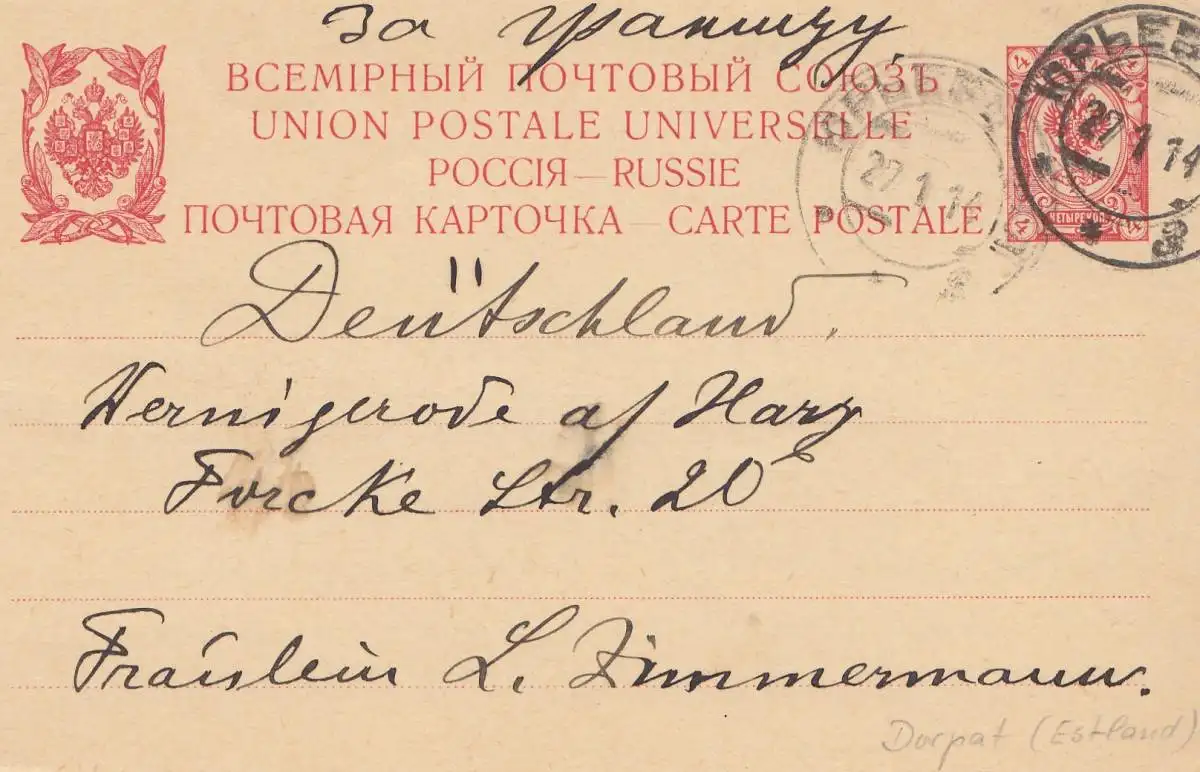 За границу
ВСЕМІРНЫЙ ПОЧТОВЫЙ СОЮЗЪ
UNION POSTALE UNIVERSELLE
РОССІЯ — RUSSIE
ПОЧТОВАЯ КАРТОЧКА — CARTE POSTALE
4 4
4 ЧЕТЫРЕ КОП. 4
ЮРЬЕВ
27 1 14
ЮРЬЕВ
27 1 14
3
Deütschland.
Wernigerode a/ Harz
Forcke Str. 20
Fräulein L. Zimmermann.
Dorpat (Estland)